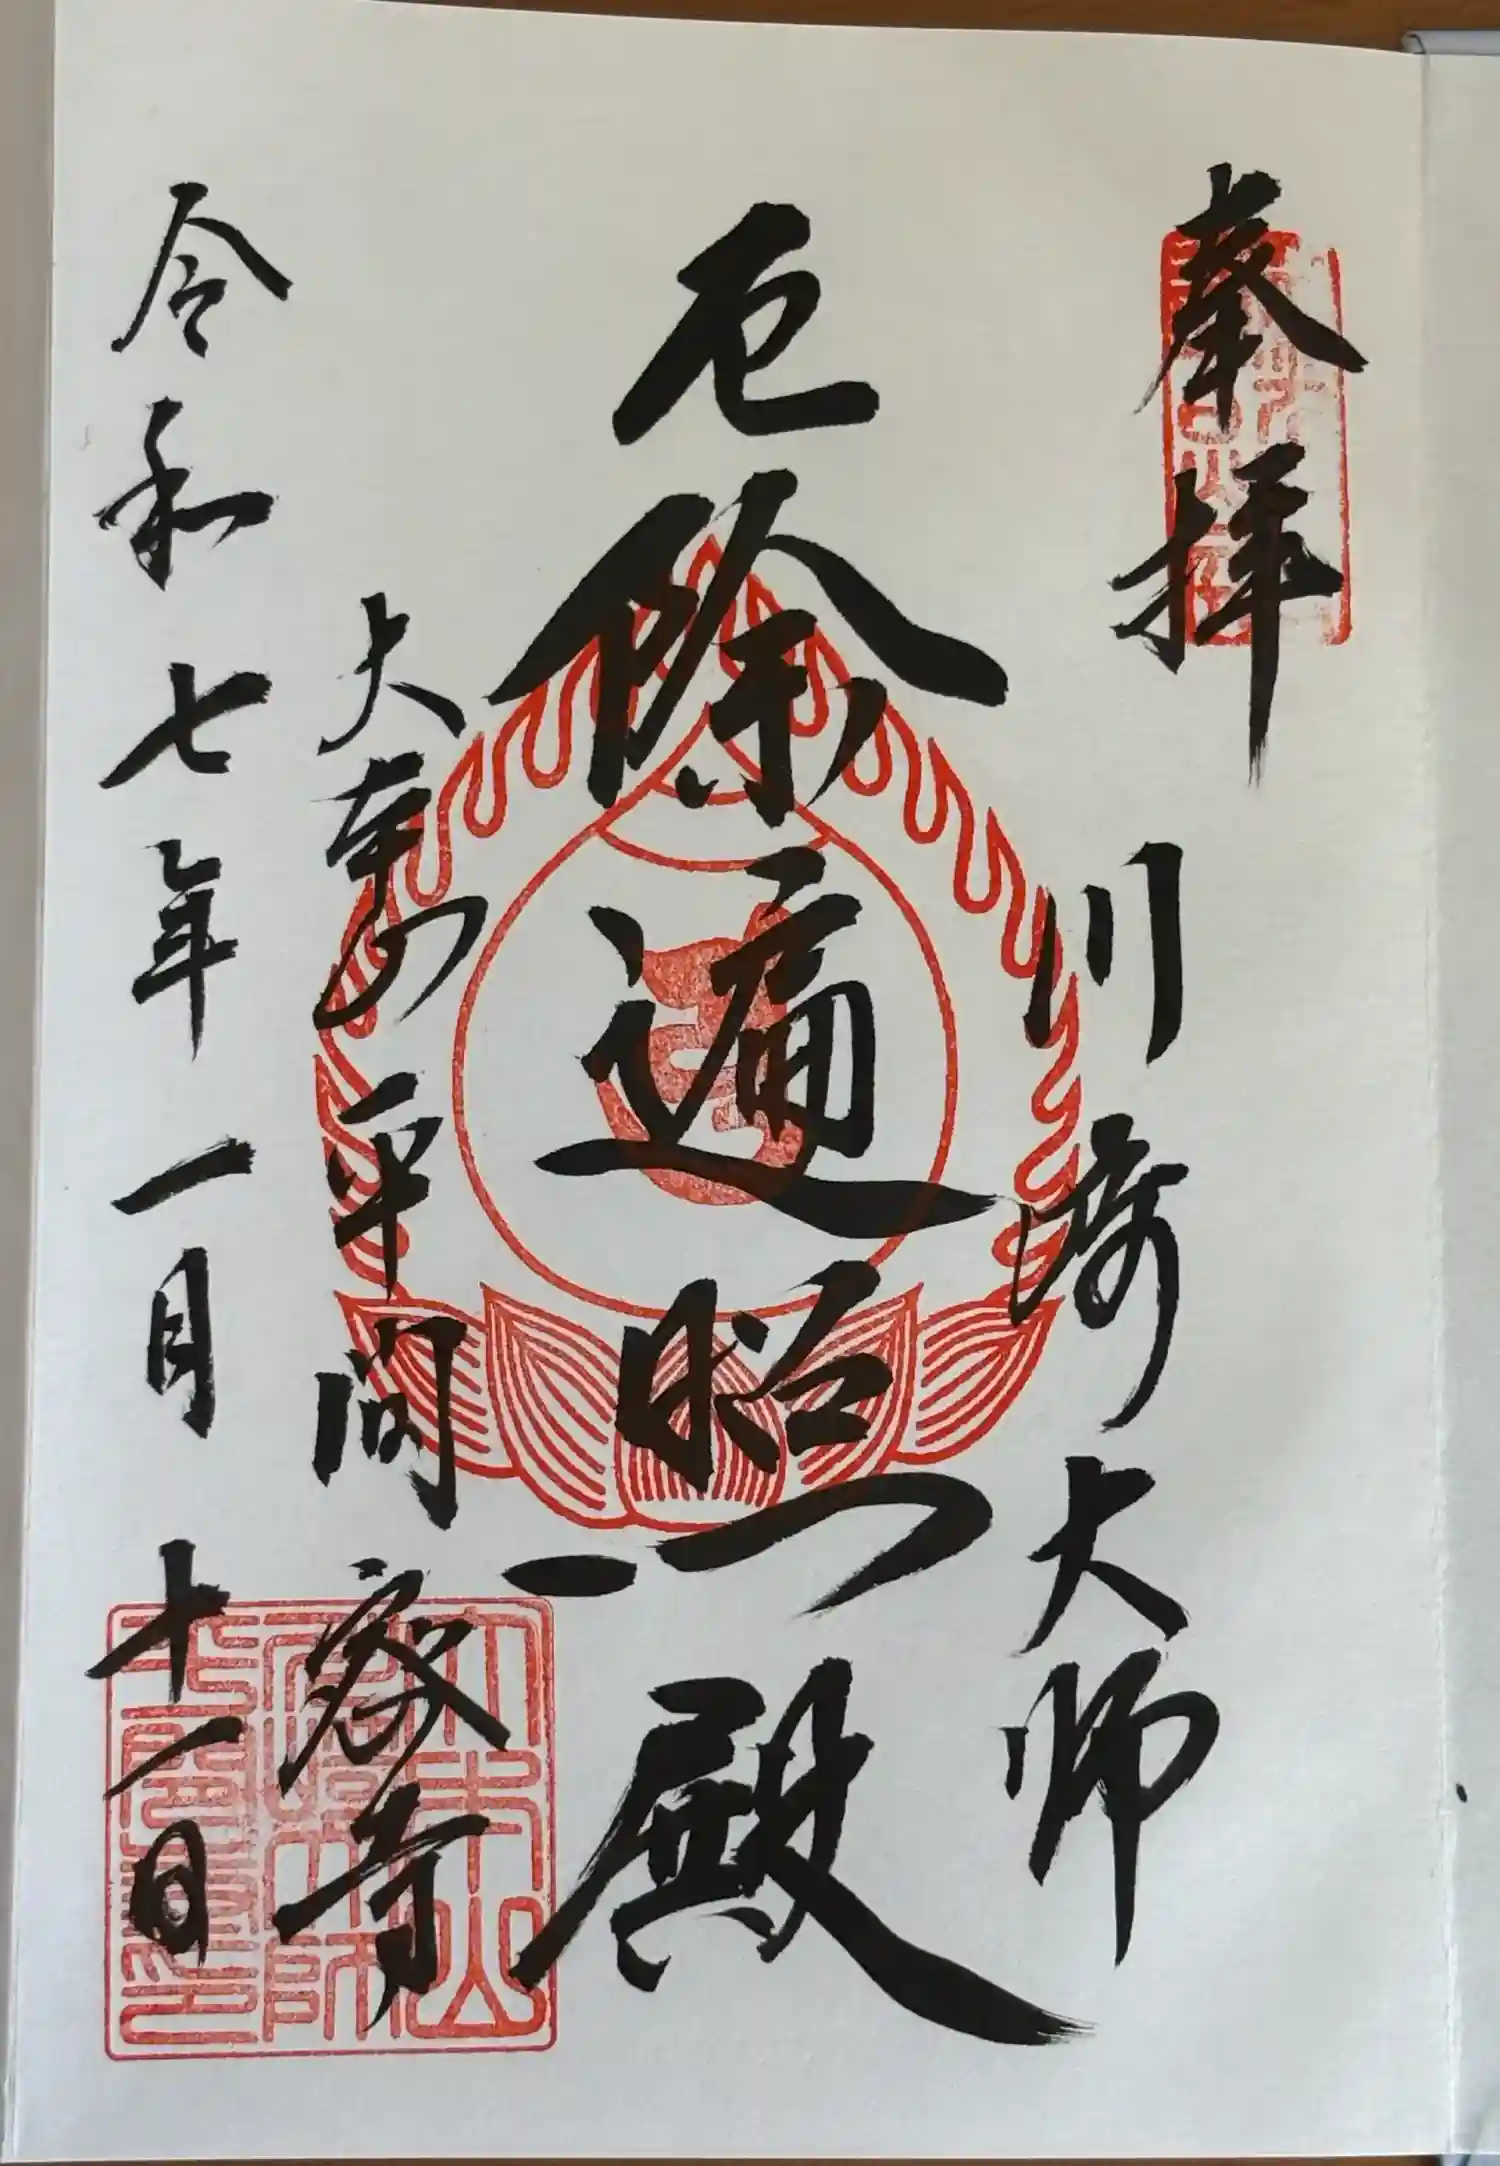 奉拝
川崎大師
厄除遍照殿
大本山 平間寺
令和七年一月十一日